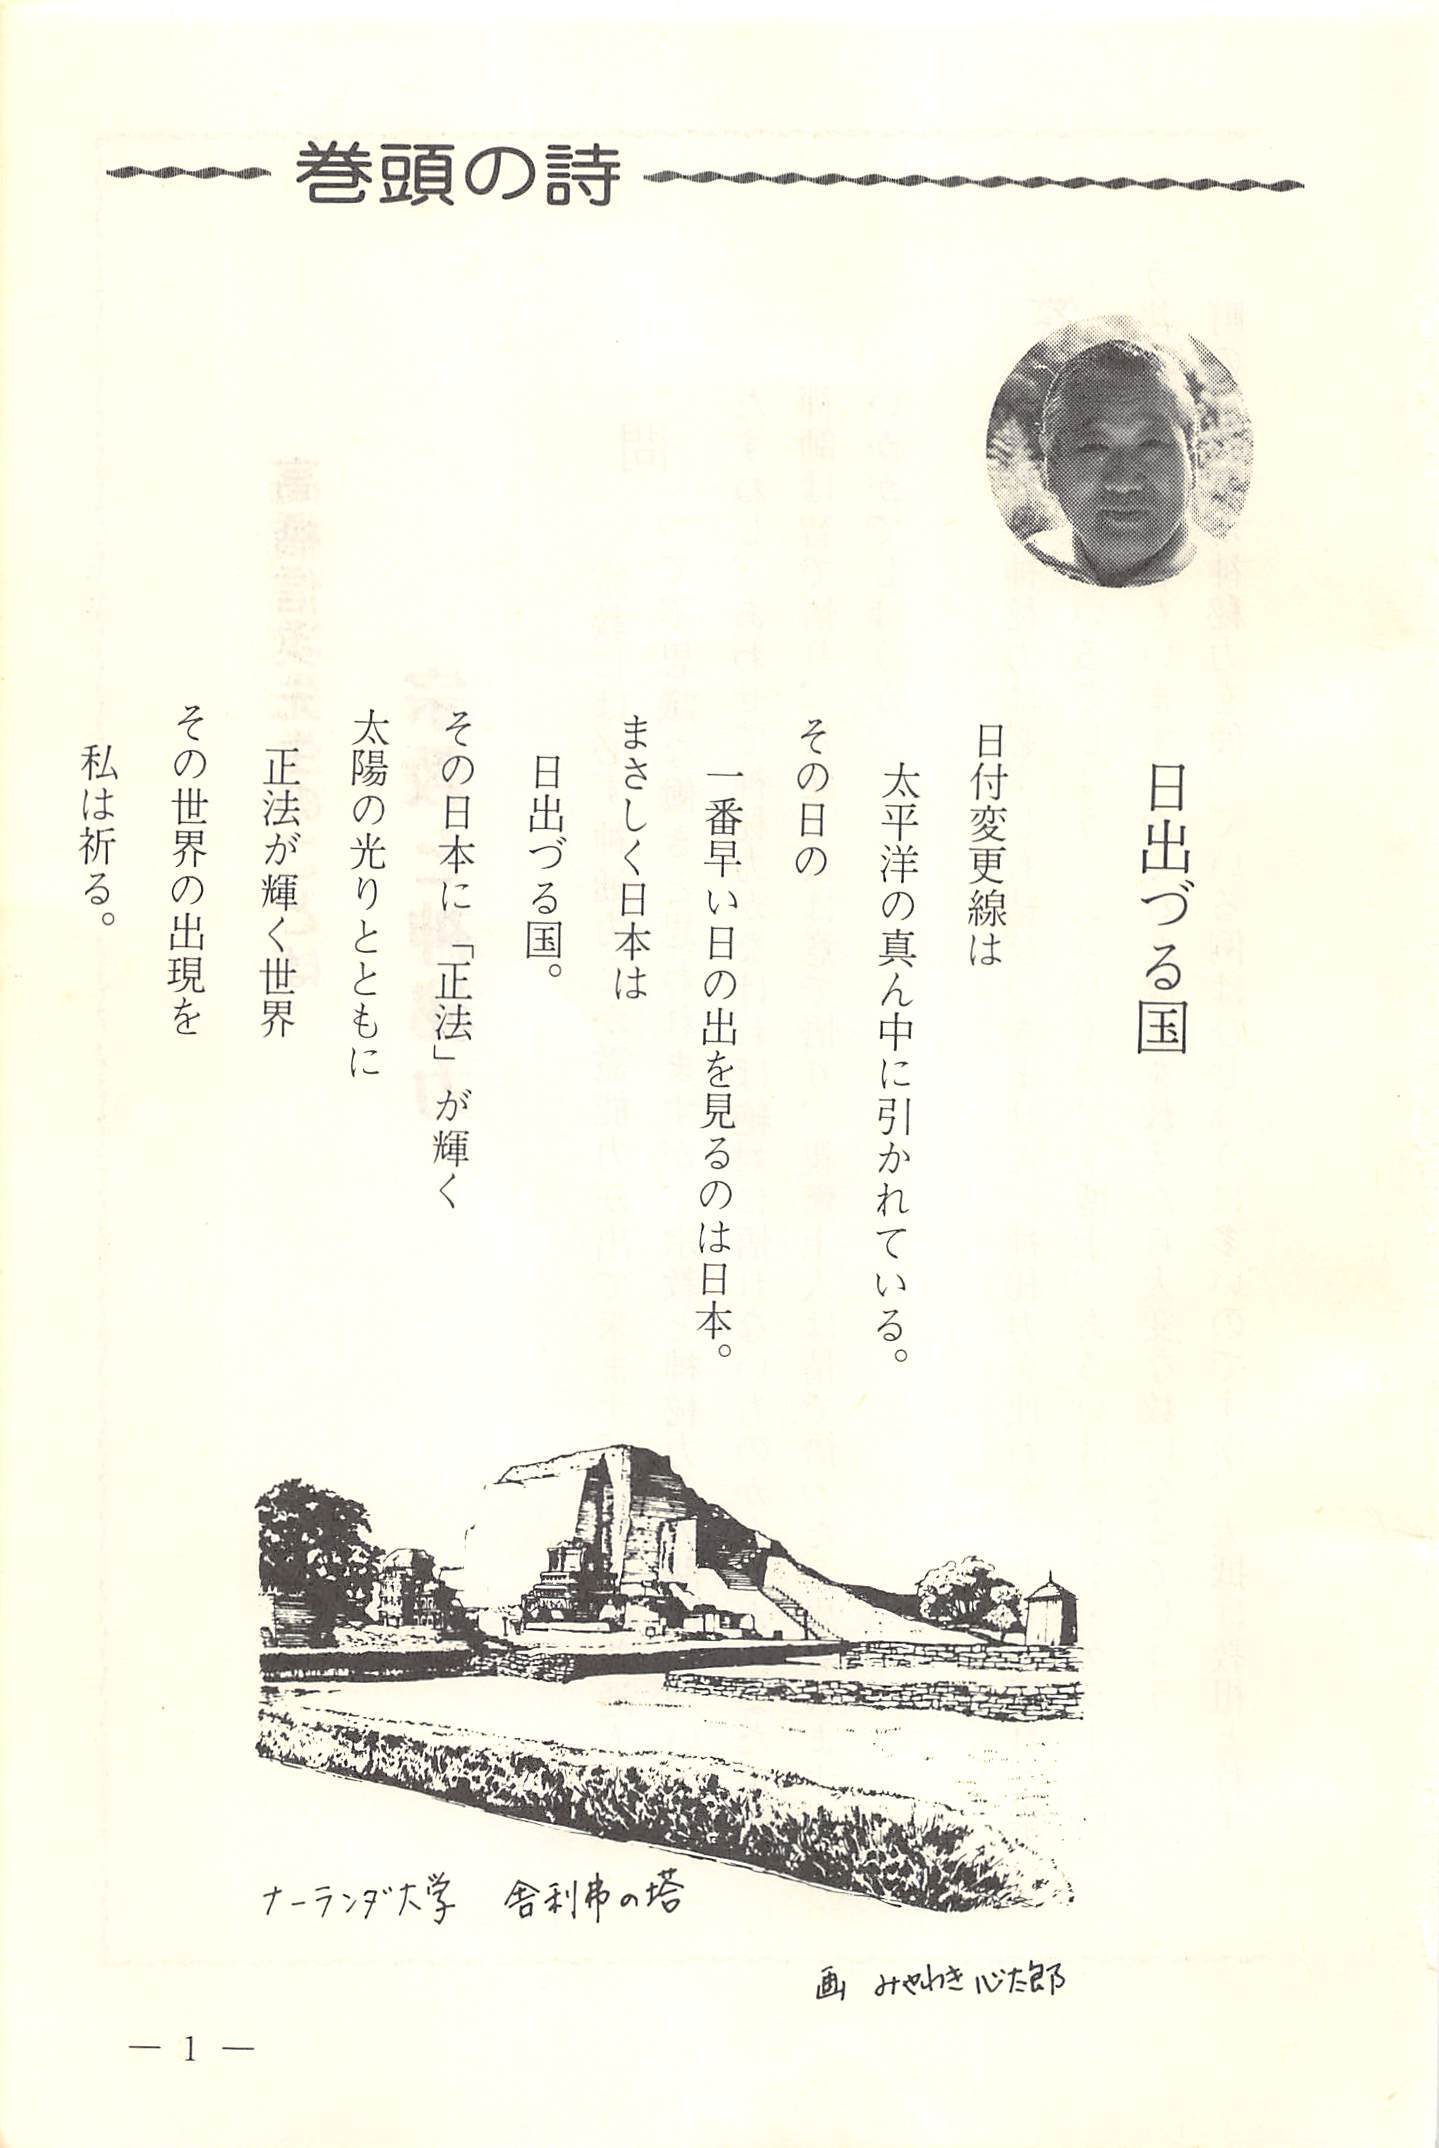 巻頭の詩
日出づる国
日付変更線は
太平洋の真ん中に引かれている。
その日の
一番早い日の出を見るのは日本。
まさしく日本は
日出づる国。
その日本に「正法」が輝く
太陽の光りとともに
正法が輝く世界
その世界の出現を
私は祈る。
ナーランダ大学 舎利弗の塔
画 みやわき心太郎
— 1 —